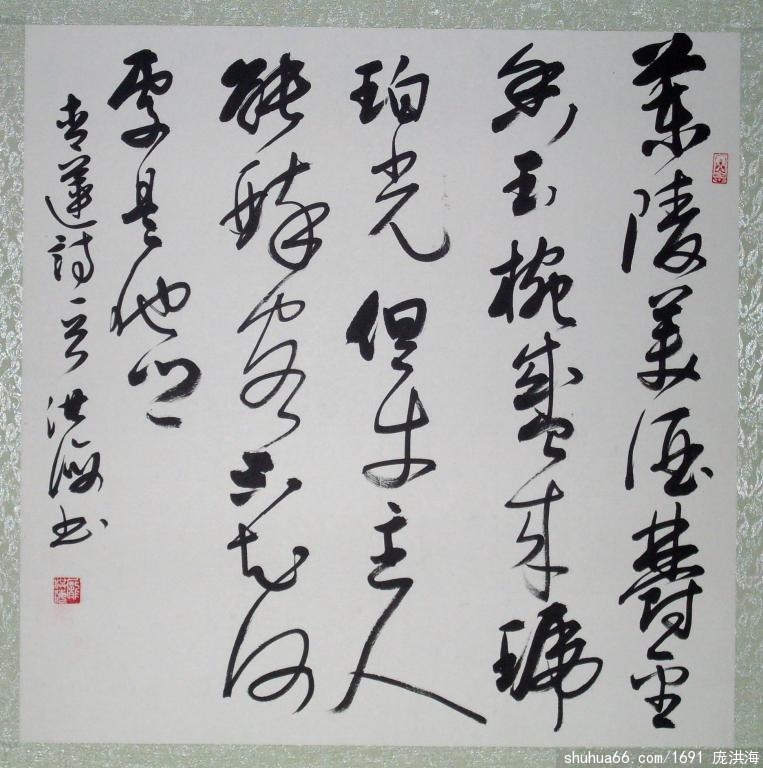 蘭陵美酒鬱金
香玉椀盛來琥
珀光但使主人
能醉客不知何
處是他鄉
青蓮詩一首洪海书
shuhua66.com/1691 庞洪海